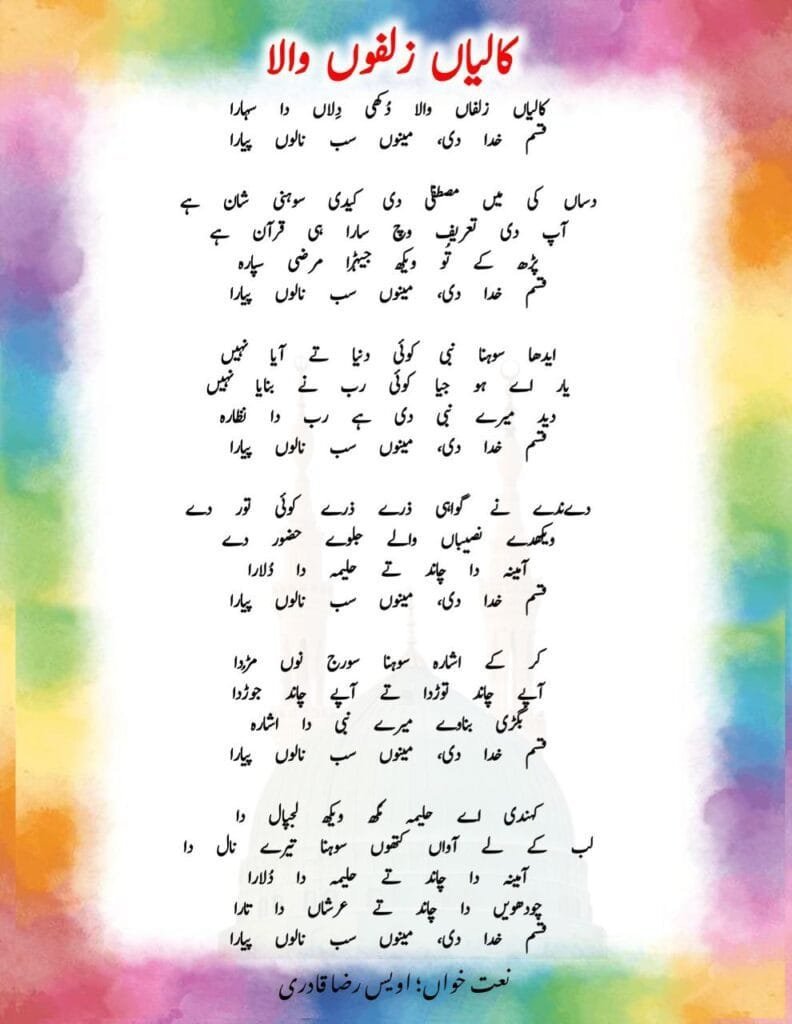 کالیاں زلفوں والا
کالیاں زلفاں والا دُکھی دِلاں دا سہارا
قسم خدا دی، مینوں سب نالوں پیارا
دساں کی میں مصطفٰی دی کیڈی سوہنی شان ہے
آپ دی تعریف وچ سارا ہی قرآن ہے
پڑھ کے تُو ویکھ جیہڑا مرضی سپارہ
قسم خدا دی، مینوں سب نالوں پیارا
ایدھا سوہنا نبی کوئی دنیا تے آیا نہیں
یار اے ہو جیا کوئی رب نے بنایا نہیں
دید میرے نبی دی ہے رب دا نظارہ
قسم خدا دی، مینوں سب نالوں پیارا
دےندے نے گواہی ذرے ذرے کوئی تور دے
ویکھدے نصیباں والے جلوے حضور دے
آمینہ دا چاند تے حلیمہ دا دُلارا
قسم خدا دی، مینوں سب نالوں پیارا
کر کے اشارہ سوہنا سورج نوں مڑدا
آپے چاند توڑدا تے آپے چاند جوڑدا
بگڑی بناوے میرے نبی دا اشارہ
قسم خدا دی، مینوں سب نالوں پیارا
کہندی اے حلیمہ مکھ ویکھ لجپال دا
لب کے لے آواں کتھوں سوہنا تیرے نال دا
آمینہ دا چاند تے حلیمہ دا دُلارا
چودھویں دا چاند تے عرشاں دا تارا
قسم خدا دی، مینوں سب نالوں پیارا
نعت خواں؛ اویس رضا قادری